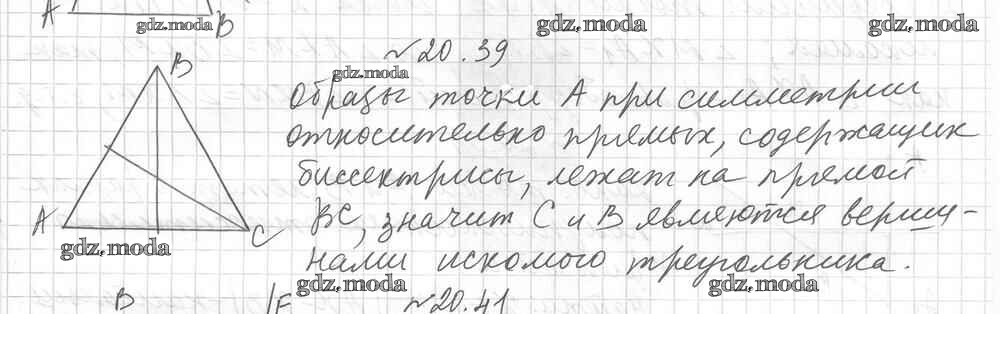 A B
gdz.moda
gdz.moda
gdz.moda
№20.39
B
gdz.moda
Образы точки А при симметрии
относительно прямых, содержащих
биссектрисы, лежат на прямой
A
C
BC, значит C и B являются верши-
gdz.moda
нами искомого треугольника.
gdz.moda
gdz.moda
B
F
№20.41